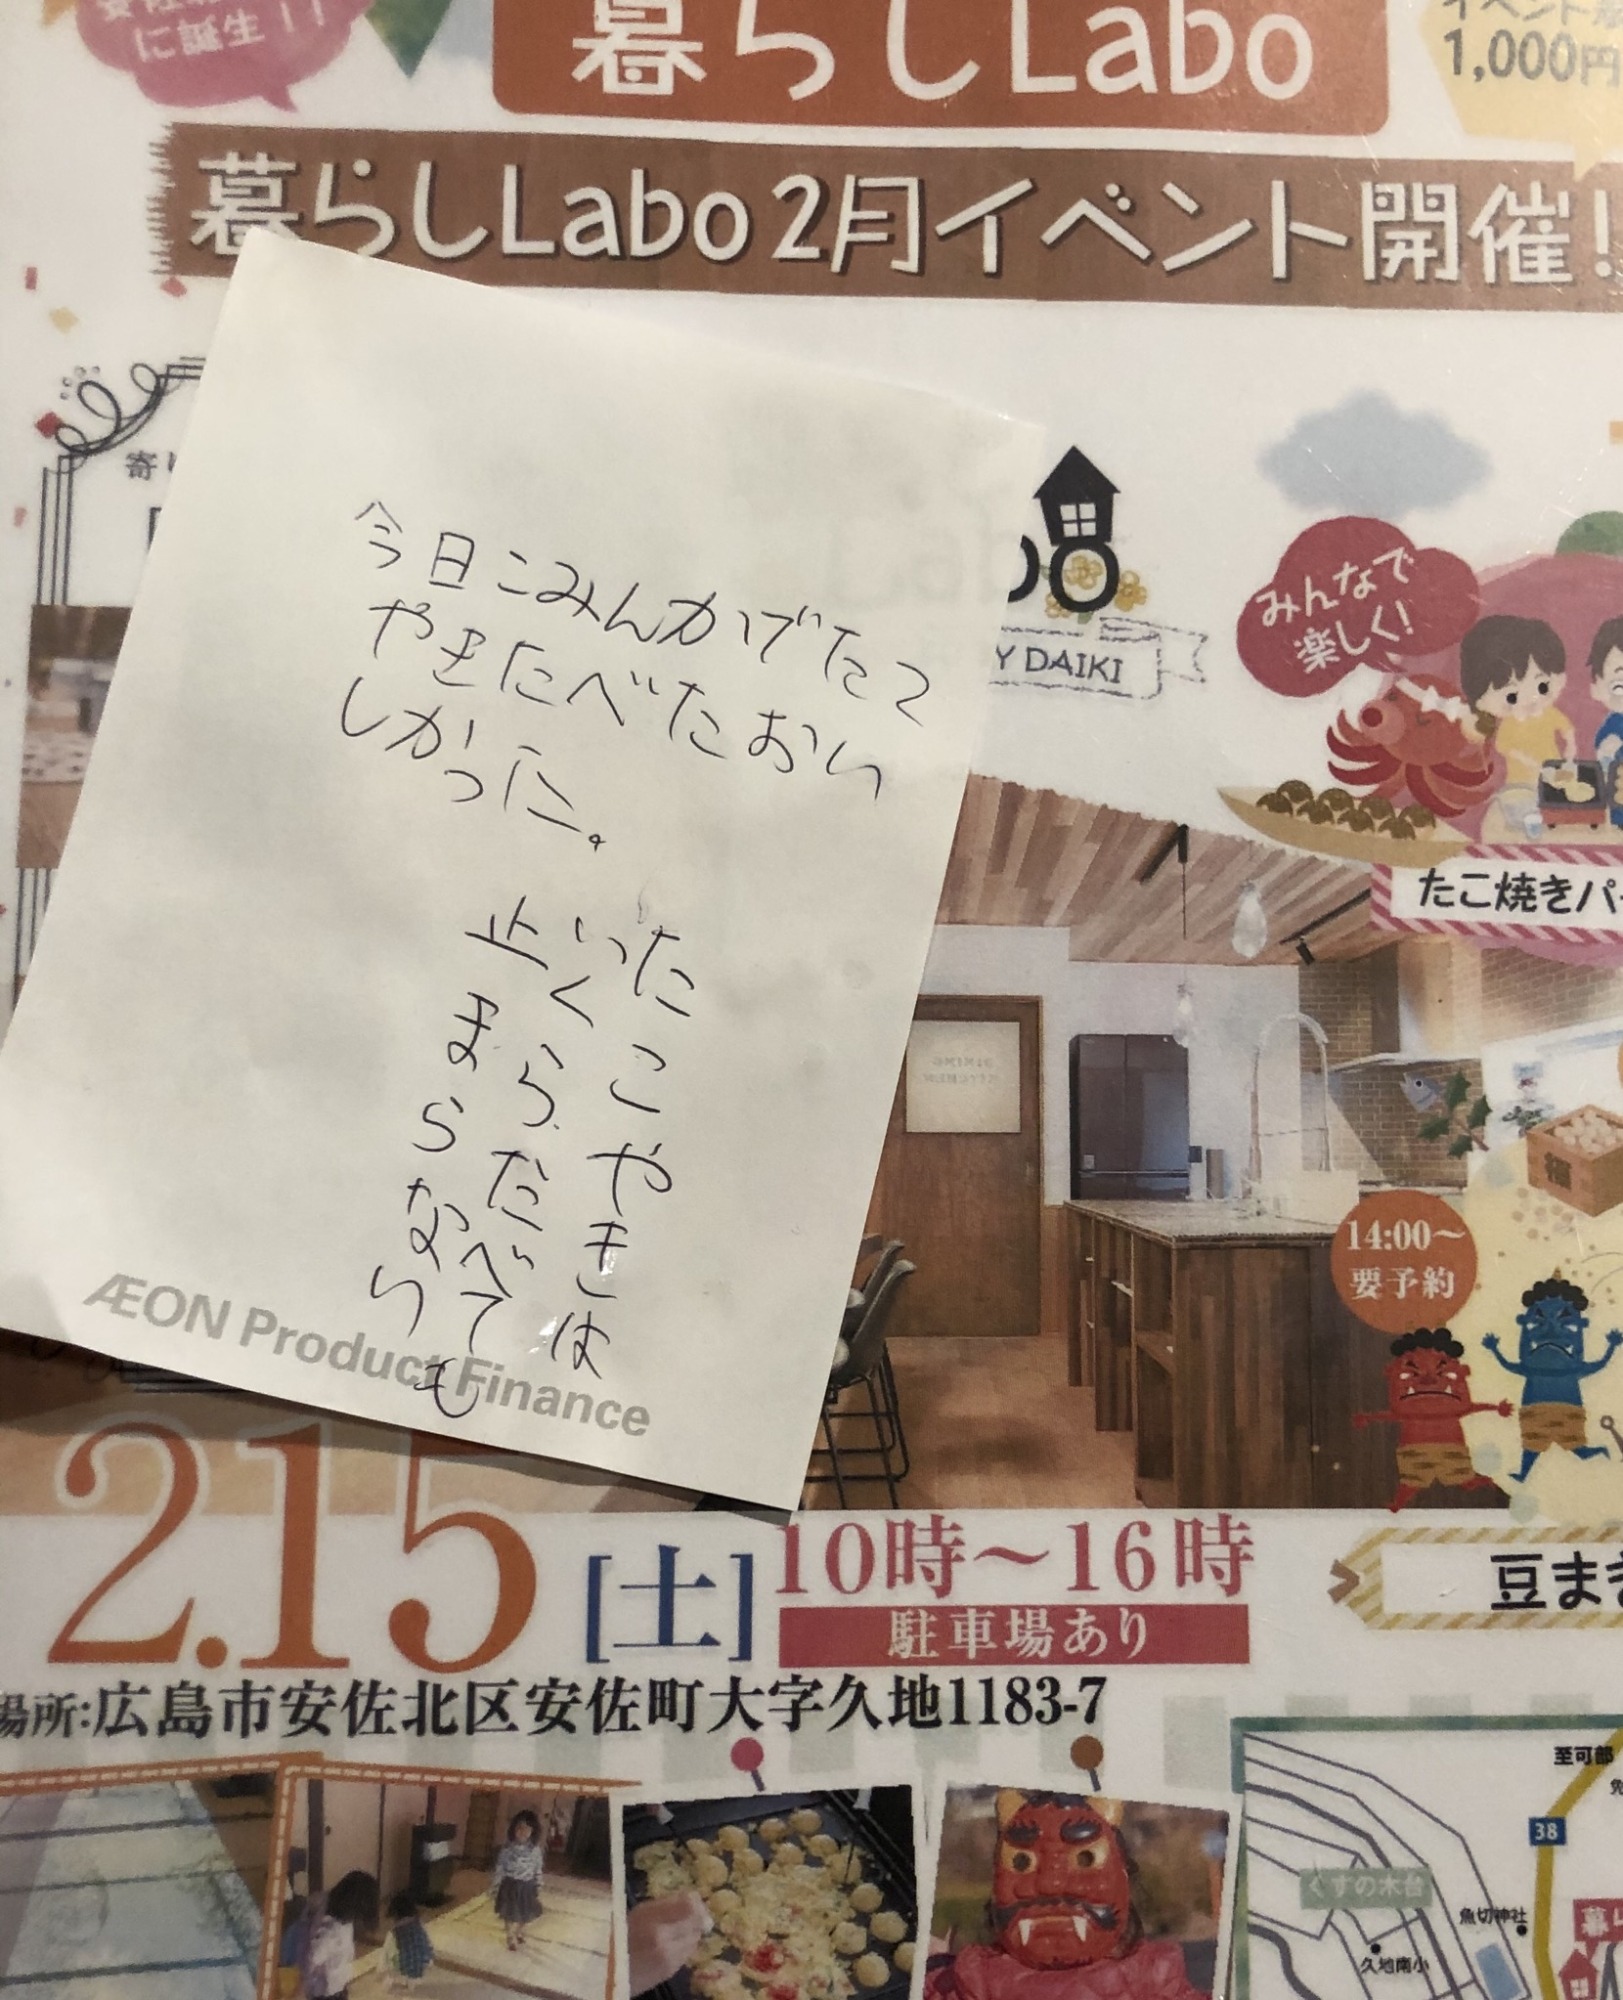 に誕生！！
暮らしLabo
1,000円
暮らしLabo 2月イベント開催！
今日こみんかでたこ
やきたべたおい
しかった。
たこやきは
いくらだべても
止まらない
ÆON Product Finance
Y DAIKI
みんなで
楽しく！
たこ焼きパ
14:00～
要予約
福
2.15 [土] 10時～16時
駐車場あり
豆ま
場所:広島市安佐北区安佐町大字久地1183-7
至可部
38
くすの木台
魚切神社
久地南小